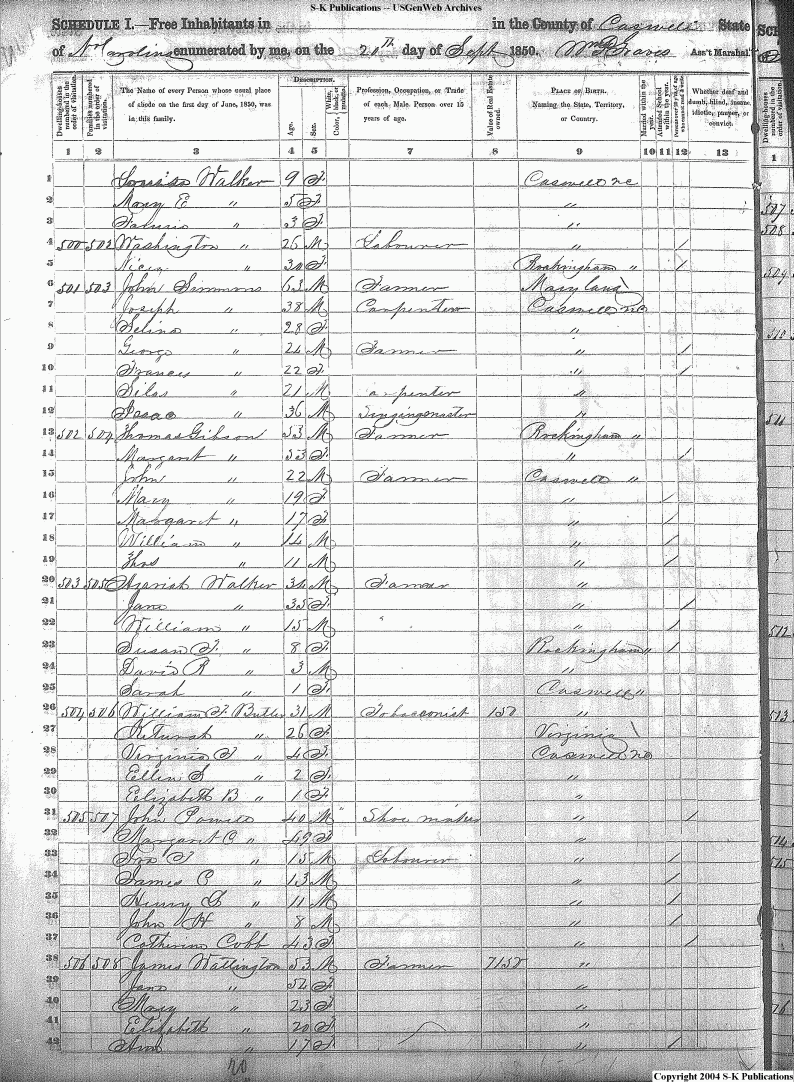 S-K Publications -- USGenWeb Archives
SCHEDULE I.—Free Inhabitants in in the County of Caswell State
of N Carolina enumerated by me, on the 20th day of Sept 1850. Wm Graves Ass't Marshal
Dwelling-houses numbered in the order of visitation. Families numbered in the order of visitation. The Name of every Person whose usual place of abode on the first day of June, 1850, was in this family. Description. Age. Sex. Color, White, black, or mulatto. Profession, Occupation, or Trade of each Male Person over 15 years of age. Value of Real Estate owned. Place of Birth. Naming the State, Territory, or Country. Married within the year. Attended School within the year. Whether deaf and dumb, blind, insane, idiotic, pauper, or convict.
1 2 3 4 5 6 7 8 9 10 11 12 13
1 Walker 9 F Caswell NC
2 Mary E " 5 F "
3 " 3 F "
4 500 502 Washington " 26 M Labourer " /
5 " 30 F Rockingham " /
6 501 503 John Simmons 63 M Farmer Maryland
7 Joseph " 38 M Carpenter Caswell NC
8 Selina " 28 F "
9 George " 24 M Farmer " /
10 Frances " 22 F " /
11 Silas " 21 M Carpenter "
12 Isaac " 36 M Singingmaster "
13 502 504 Thomas Gibson 53 M Farmer Rockingham "
14 Margaret " 53 F " /
15 John " 22 M Farmer Caswell "
16 Mary " 19 F " /
17 Margaret " 17 F " /
18 William " 14 M " /
19 Thos " 11 M " /
20 503 505 Azariah Walker 34 M Farmer "
21 Jane " 35 F " /
22 William " 15 M " /
23 Susan F. " 8 F Rockingham " /
24 David R " 3 M "
25 Sarah " 1 F Caswell "
26 504 506 William F. Butler 31 M Tobacconist 150 "
27 Keturah " 26 F Virginia
28 Virginia F " 4 F Caswell NC
29 Ellin S " 2 F "
30 Elizabeth B " 1 F "
31 505 507 John Powell 40 M Shoe maker " /
32 Margaret C " 49 F "
33 " 15 M Labourer " /
34 James C " 13 M " /
35 Henry G " 11 M " /
36 John H " 8 M " /
37 Catherine Cobb 43 F " /
38 506 508 James Watlington 53 M Farmer 7150 "
39 Jane " 52 F "
40 Mary " 23 F "
41 Elizabeth " 20 F "
42 Ann " 17 F "
Copyright 2004 S-K Publications